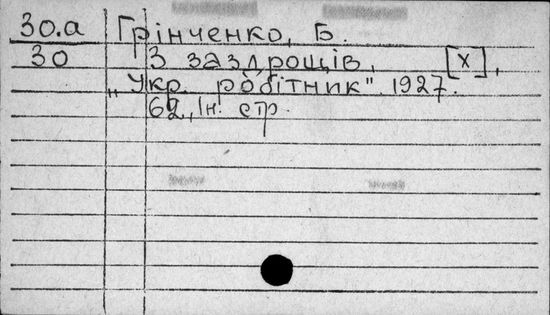 30.а Грінченко, Б.
30 З заздрощів, [х],
„Укр. робітник". 1927.
62, ін. стр.